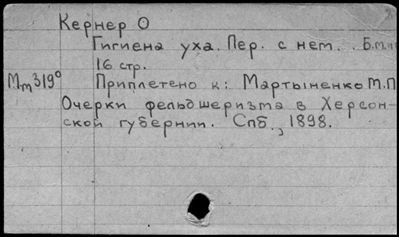 Кернер О
Гигиена уха. Пер. с нем. Б.м.
16 стр.
Mm319⁰ Приплетено к: Мартыненко М.П
Очерки фельдшеризма в Херсон-
ской губернии. Спб., 1898.